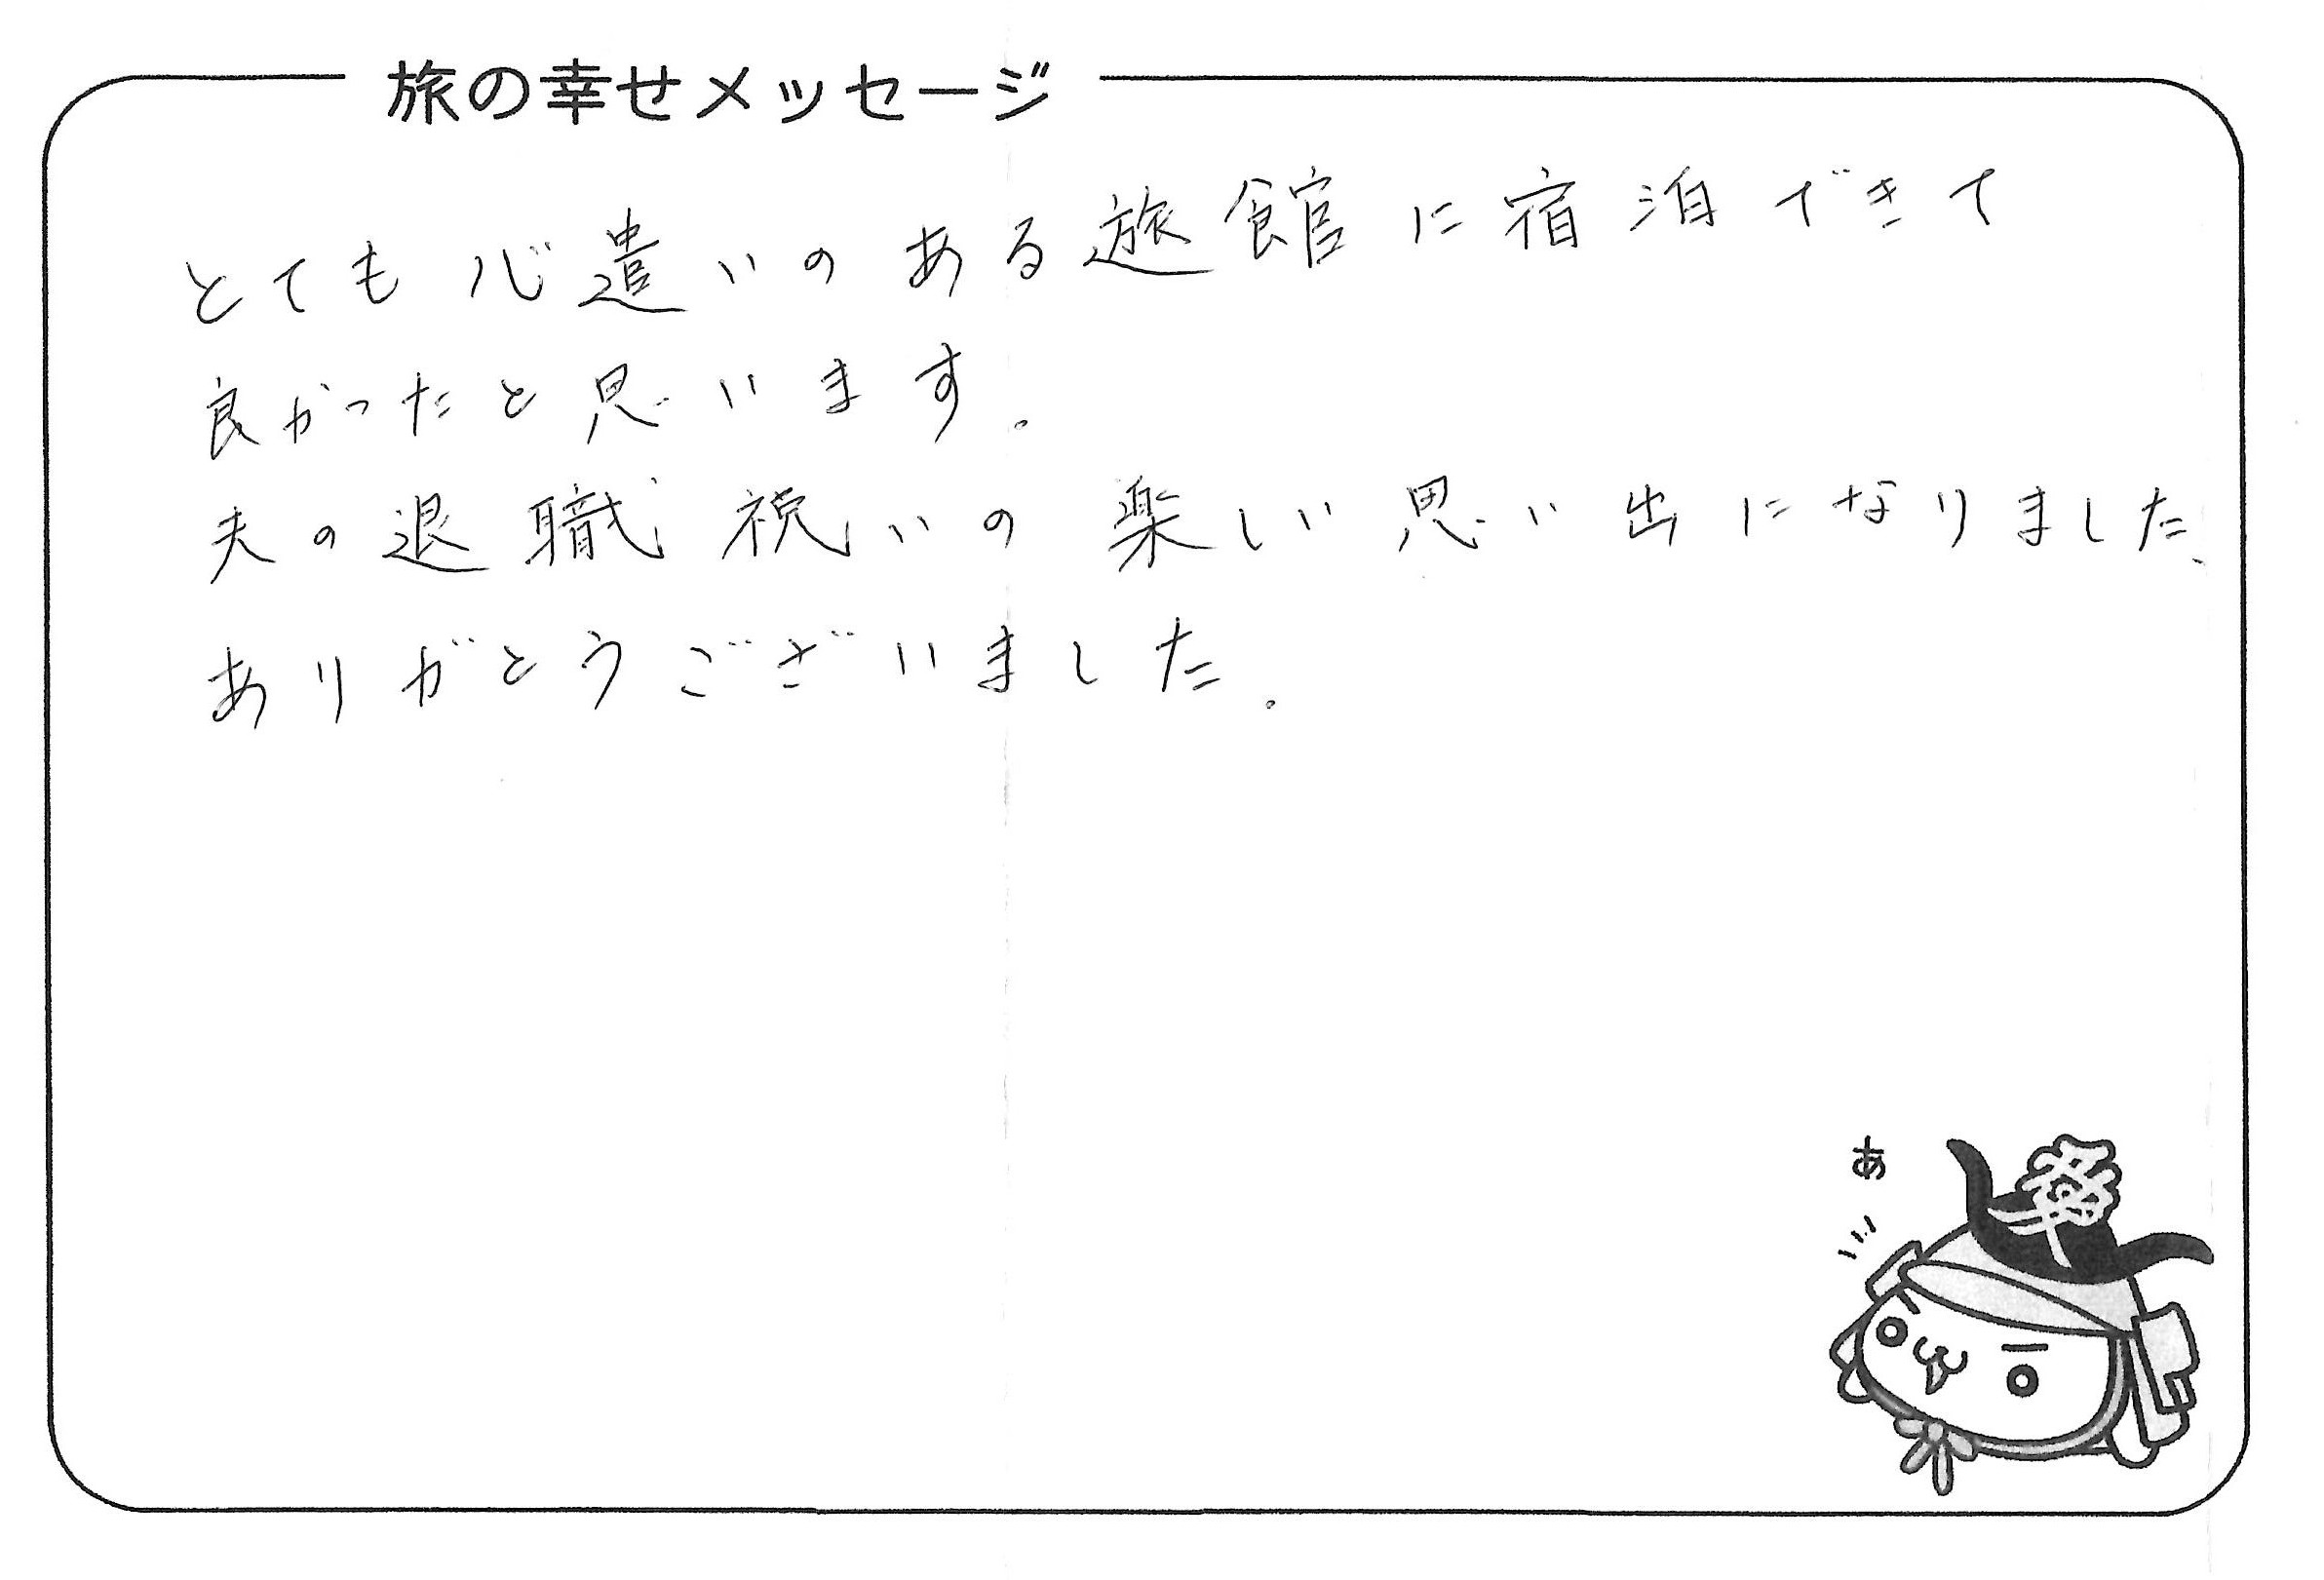 旅の幸せメッセージ
とても心遣いのある旅館に宿泊できて
良かったと思います。
夫の退職祝いの楽しい思い出になりました、
ありがとうございました。
あ
愛